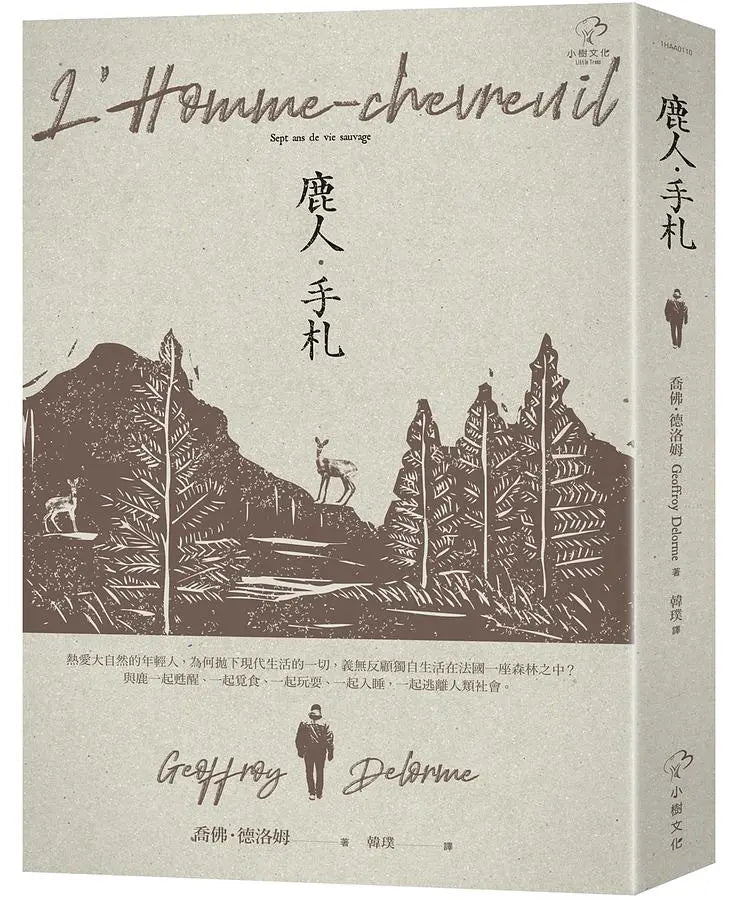 小樹文化
Little Trees
L'Homme-chevreuil
Sept ans de vie sauvage
鹿人・手札
熱愛大自然的年輕人，為何拋下現代生活的一切，義無反顧獨自生活在法國一座森林之中？
與鹿一起甦醒、一起覓食、一起玩耍、一起入睡，一起逃離人類社會。
Geoffroy Delorme
喬佛・德洛姆 著 韓璞 譯
1HAA0110
鹿人・手札
喬佛・德洛姆 Geoffroy Delorme 著
韓璞 譯
小樹文化